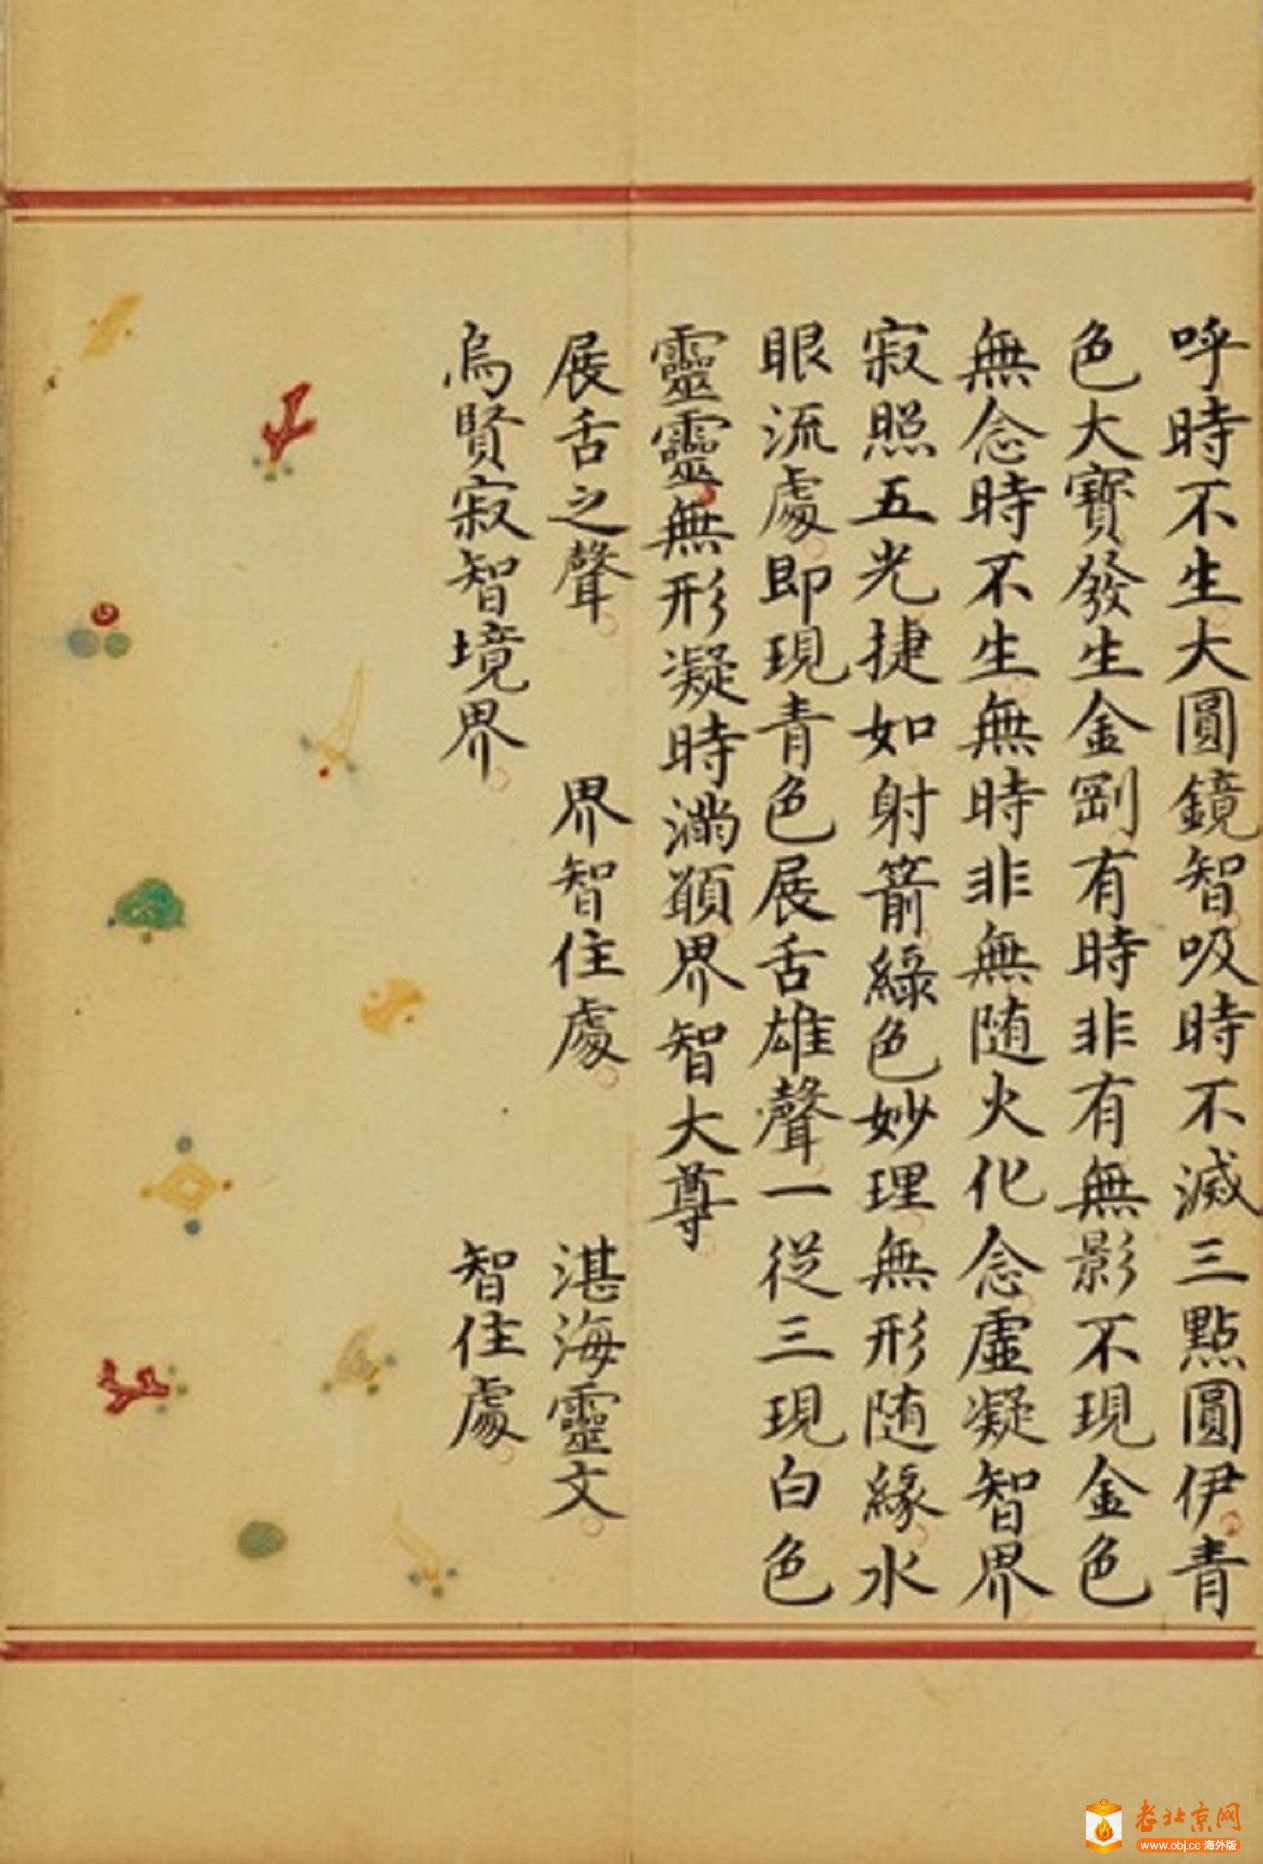 呼時不生大圓鏡智吸時不滅三點圓伊青
色大寶發生金剛有時非有無影不現金色
無念時不生無時非無随火化念虛凝智界
寂照五光捷如射箭綠色妙理無形随緣水
眼流處即現青色展舌雄聲一從三現白色
靈靈無形凝時滿願界智大尊
展舌之聲 界智住處 湛海靈文
烏賢寂智境界 智住處
老北京网
www.obj.cc 海外版